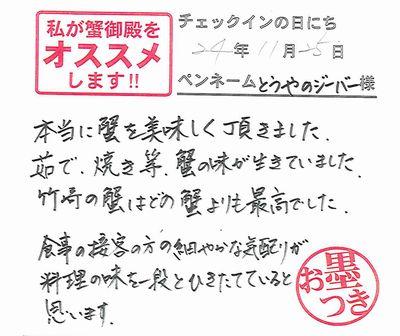 私が蟹御殿を
オススメ
します!!
チェックインの日にち
24年11月25日
ペンネームとうやのジーバー様
本当に蟹を美味しく頂きました.
茹で、焼き等、蟹の味が生きていました.
竹崎の蟹はどの蟹よりも最高でした.
食事の接客の方の細やかな気配りが
料理の味を一段とひきたてていると
思います.
お墨つき